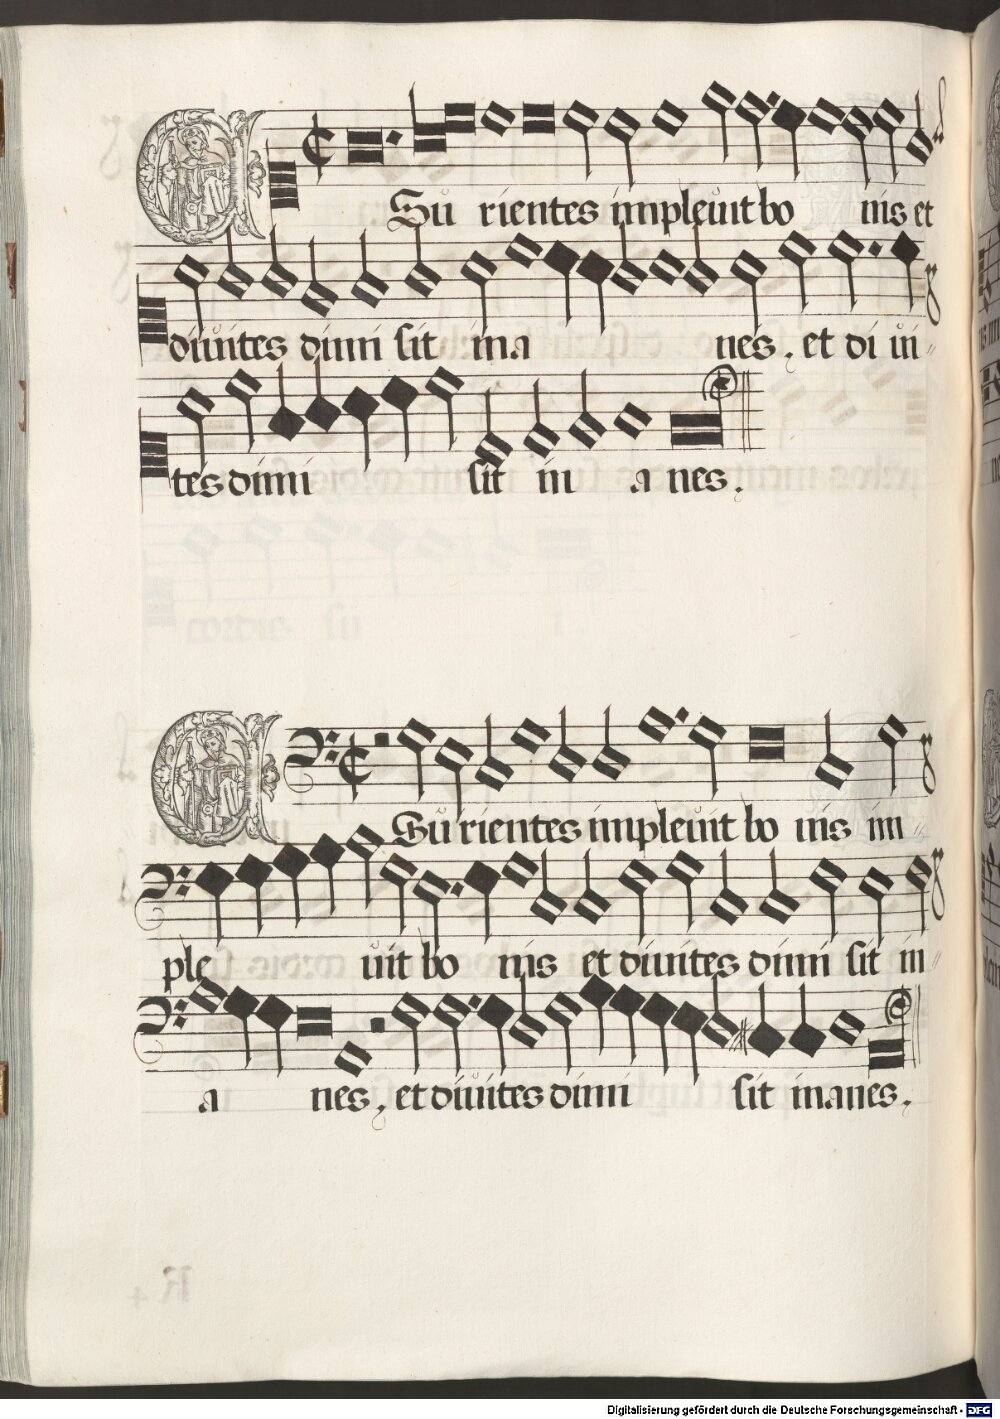 Esurientes impleuit bonis et
diuites dimisit ina nes, et diui
tes dimi sit in anes.
Esurientes impleuit bonis im
ple uit bo nis et diuites dimisit in
a nes, et diuites dimi sit inanes.
Digitalisierung gefördert durch die Deutsche Forschungsgemeinschaft - DFG